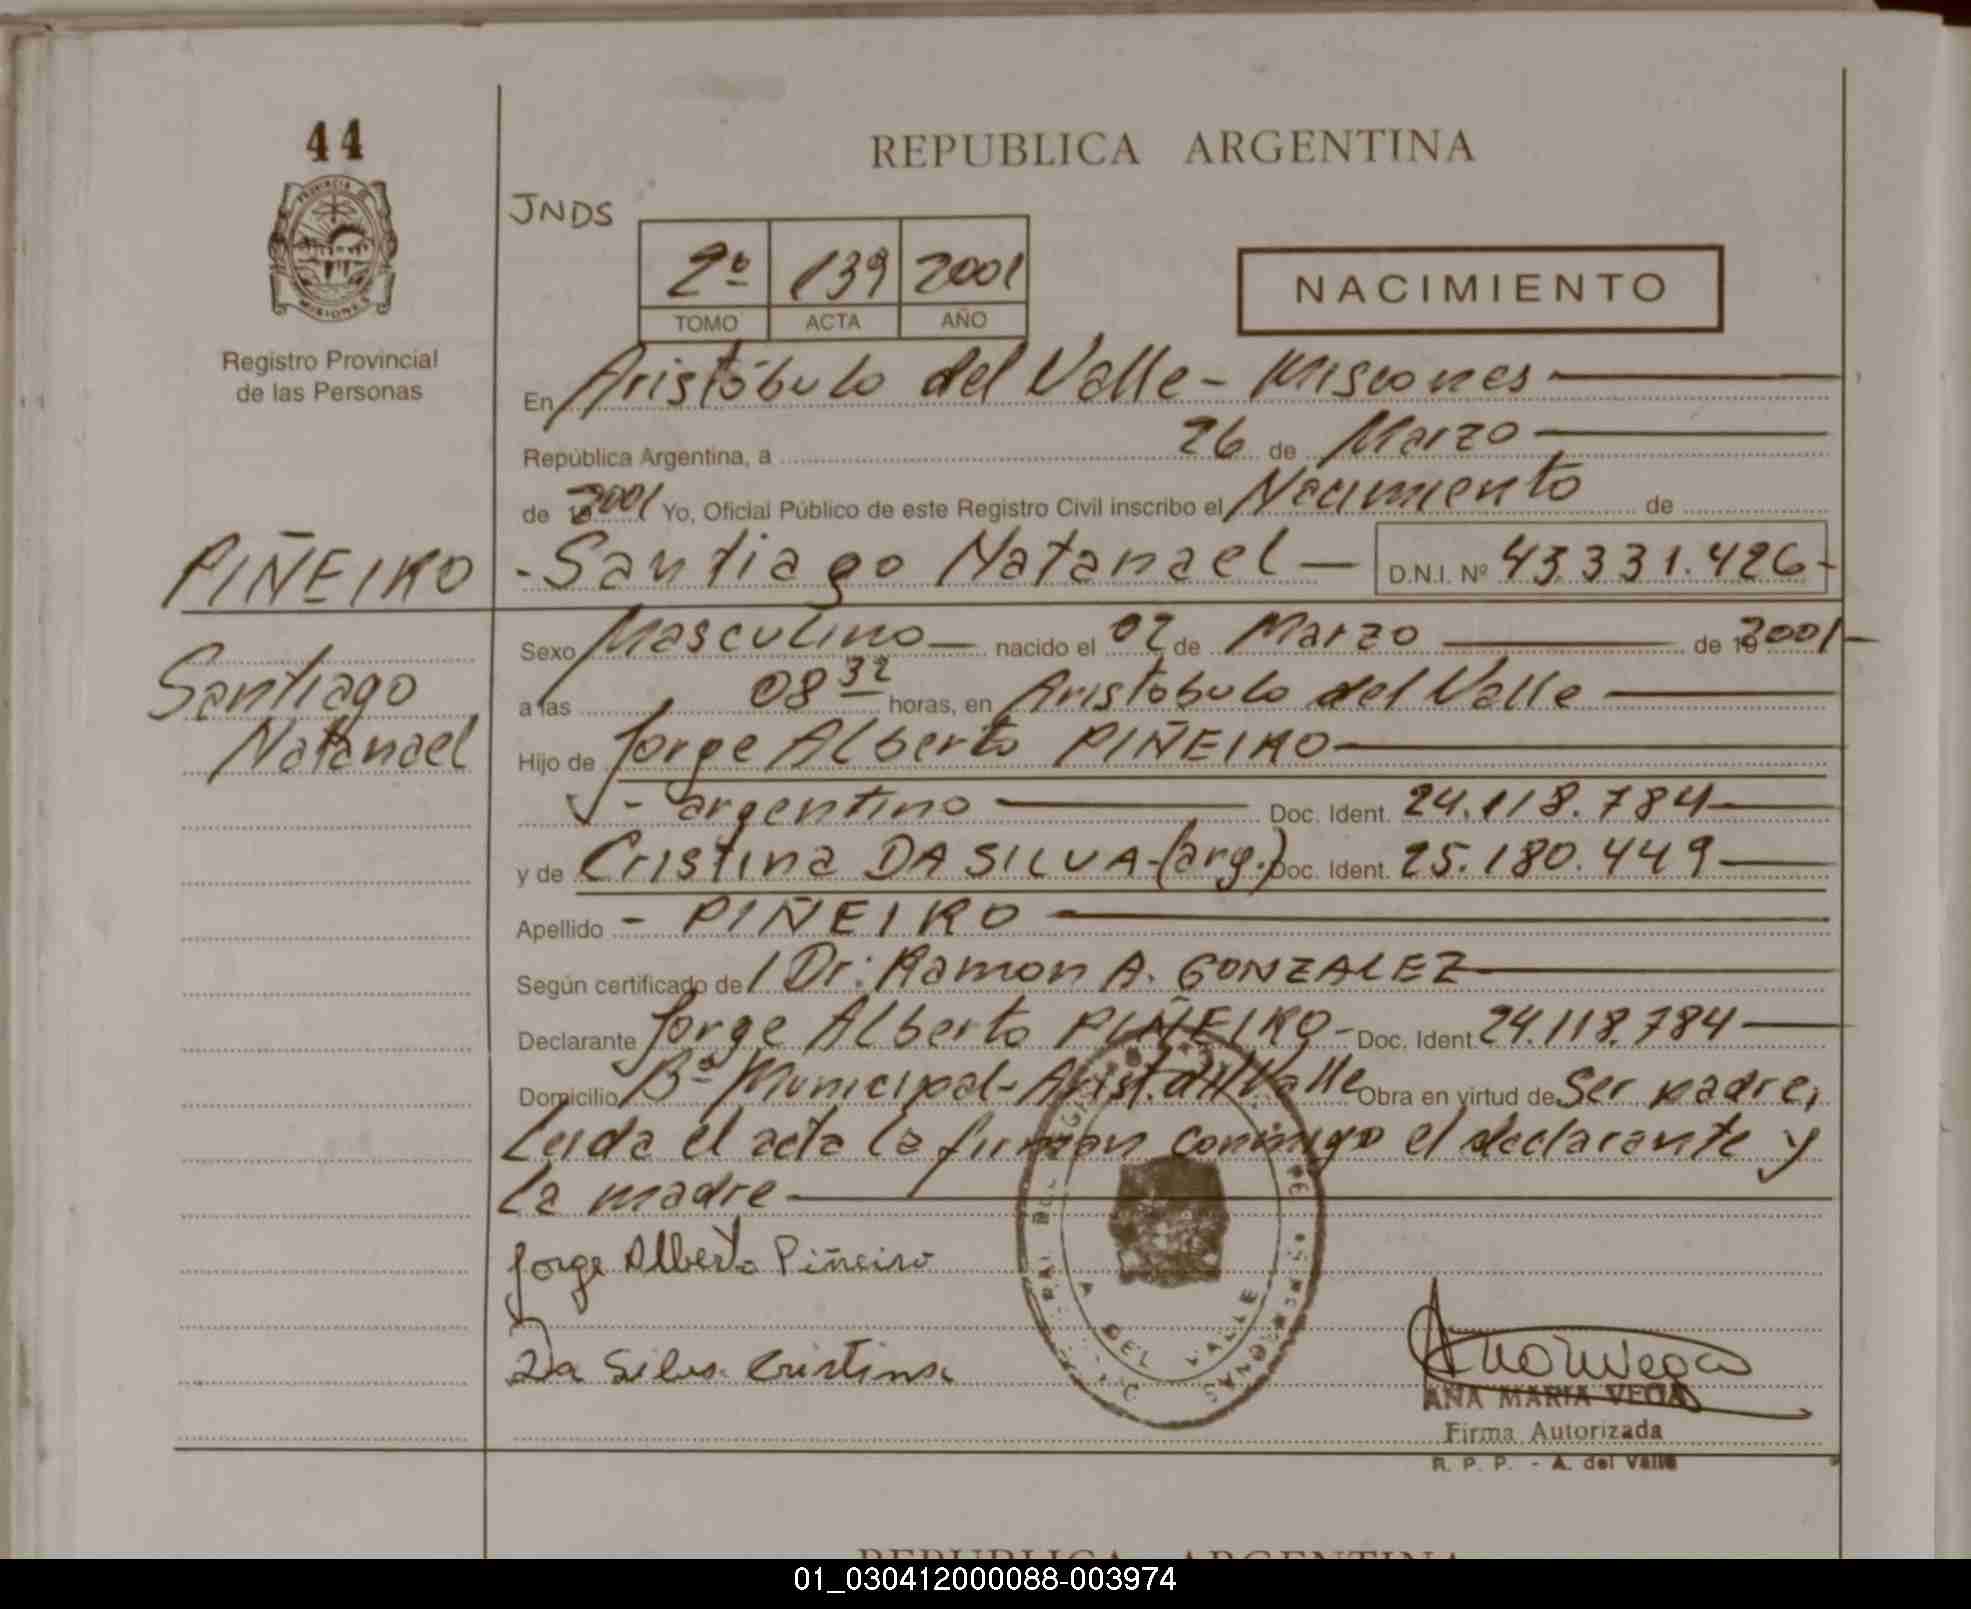 44
PROVINCIA
MISIONES
Registro Provincial
de las Personas
PIÑEIRO
Santiago
Natanael
REPUBLICA ARGENTINA
JNDS
2º 139 2001
TOMO ACTA AÑO
NACIMIENTO
En Aristóbulo del Valle - Misiones
República Argentina, a 26 de Marzo
de 2001 Yo, Oficial Público de este Registro Civil inscribo el Nacimiento de
- Santiago Natanael — D.N.I. Nº 43.331.426-
Sexo Masculino — nacido el 02 de Marzo de 2001
a las 08 32 horas, en Aristobulo del Valle
Hijo de Jorge Alberto PIÑEIRO
- argentino Doc. Ident. 24.118.784
y de Cristina DA SILVA-(arg.) Doc. Ident. 25.180.449
Apellido - PIÑEIRO
Según certificado de Dr: Ramon A. GONZALEZ
Declarante Jorge Alberto PIÑEIRO- Doc. Ident. 24.118.784
Domicilio Bº Municipal- Arist. del Valle Obra en virtud de Ser padre,
Leida el acta la firman conmigo el declarante y
la madre
Jorge Alberto Piñeiro
Da Silva Cristina
DEL VALLE
ANA MARIA VEGA
Firma Autorizada
R. P. P. - A. del Valle
REPUBLICA ARGENTINA
01_030412000088-003974